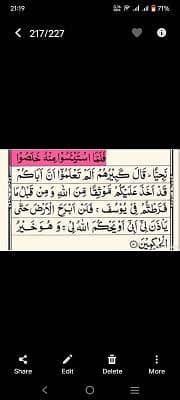 21:19
71%
217/227
فَلَمَّا اسْتَيْـَٔسُوْا مِنْهُ خَلَصُوْا
نَجِيًّا ؕ قَالَ كَبِيْرُهُمْ اَلَمْ تَعْلَمُوْۤا اَنَّ اَبَاكُمْ
قَدْ اَخَذَ عَلَيْكُمْ مَّوْثِقًا مِّنَ اللّٰهِ وَ مِنْ قَبْلُ مَا
فَرَّطْتُّمْ فِيْ يُوْسُفَ ۚ فَلَنْ اَبْرَحَ الْاَرْضَ حَتّٰى
يَاْذَنَ لِيْۤ اَبِيْۤ اَوْ يَحْكُمَ اللّٰهُ لِيْ ۚ وَ هُوَ خَيْرُ
الْحٰكِمِيْنَ
Share Edit Delete More